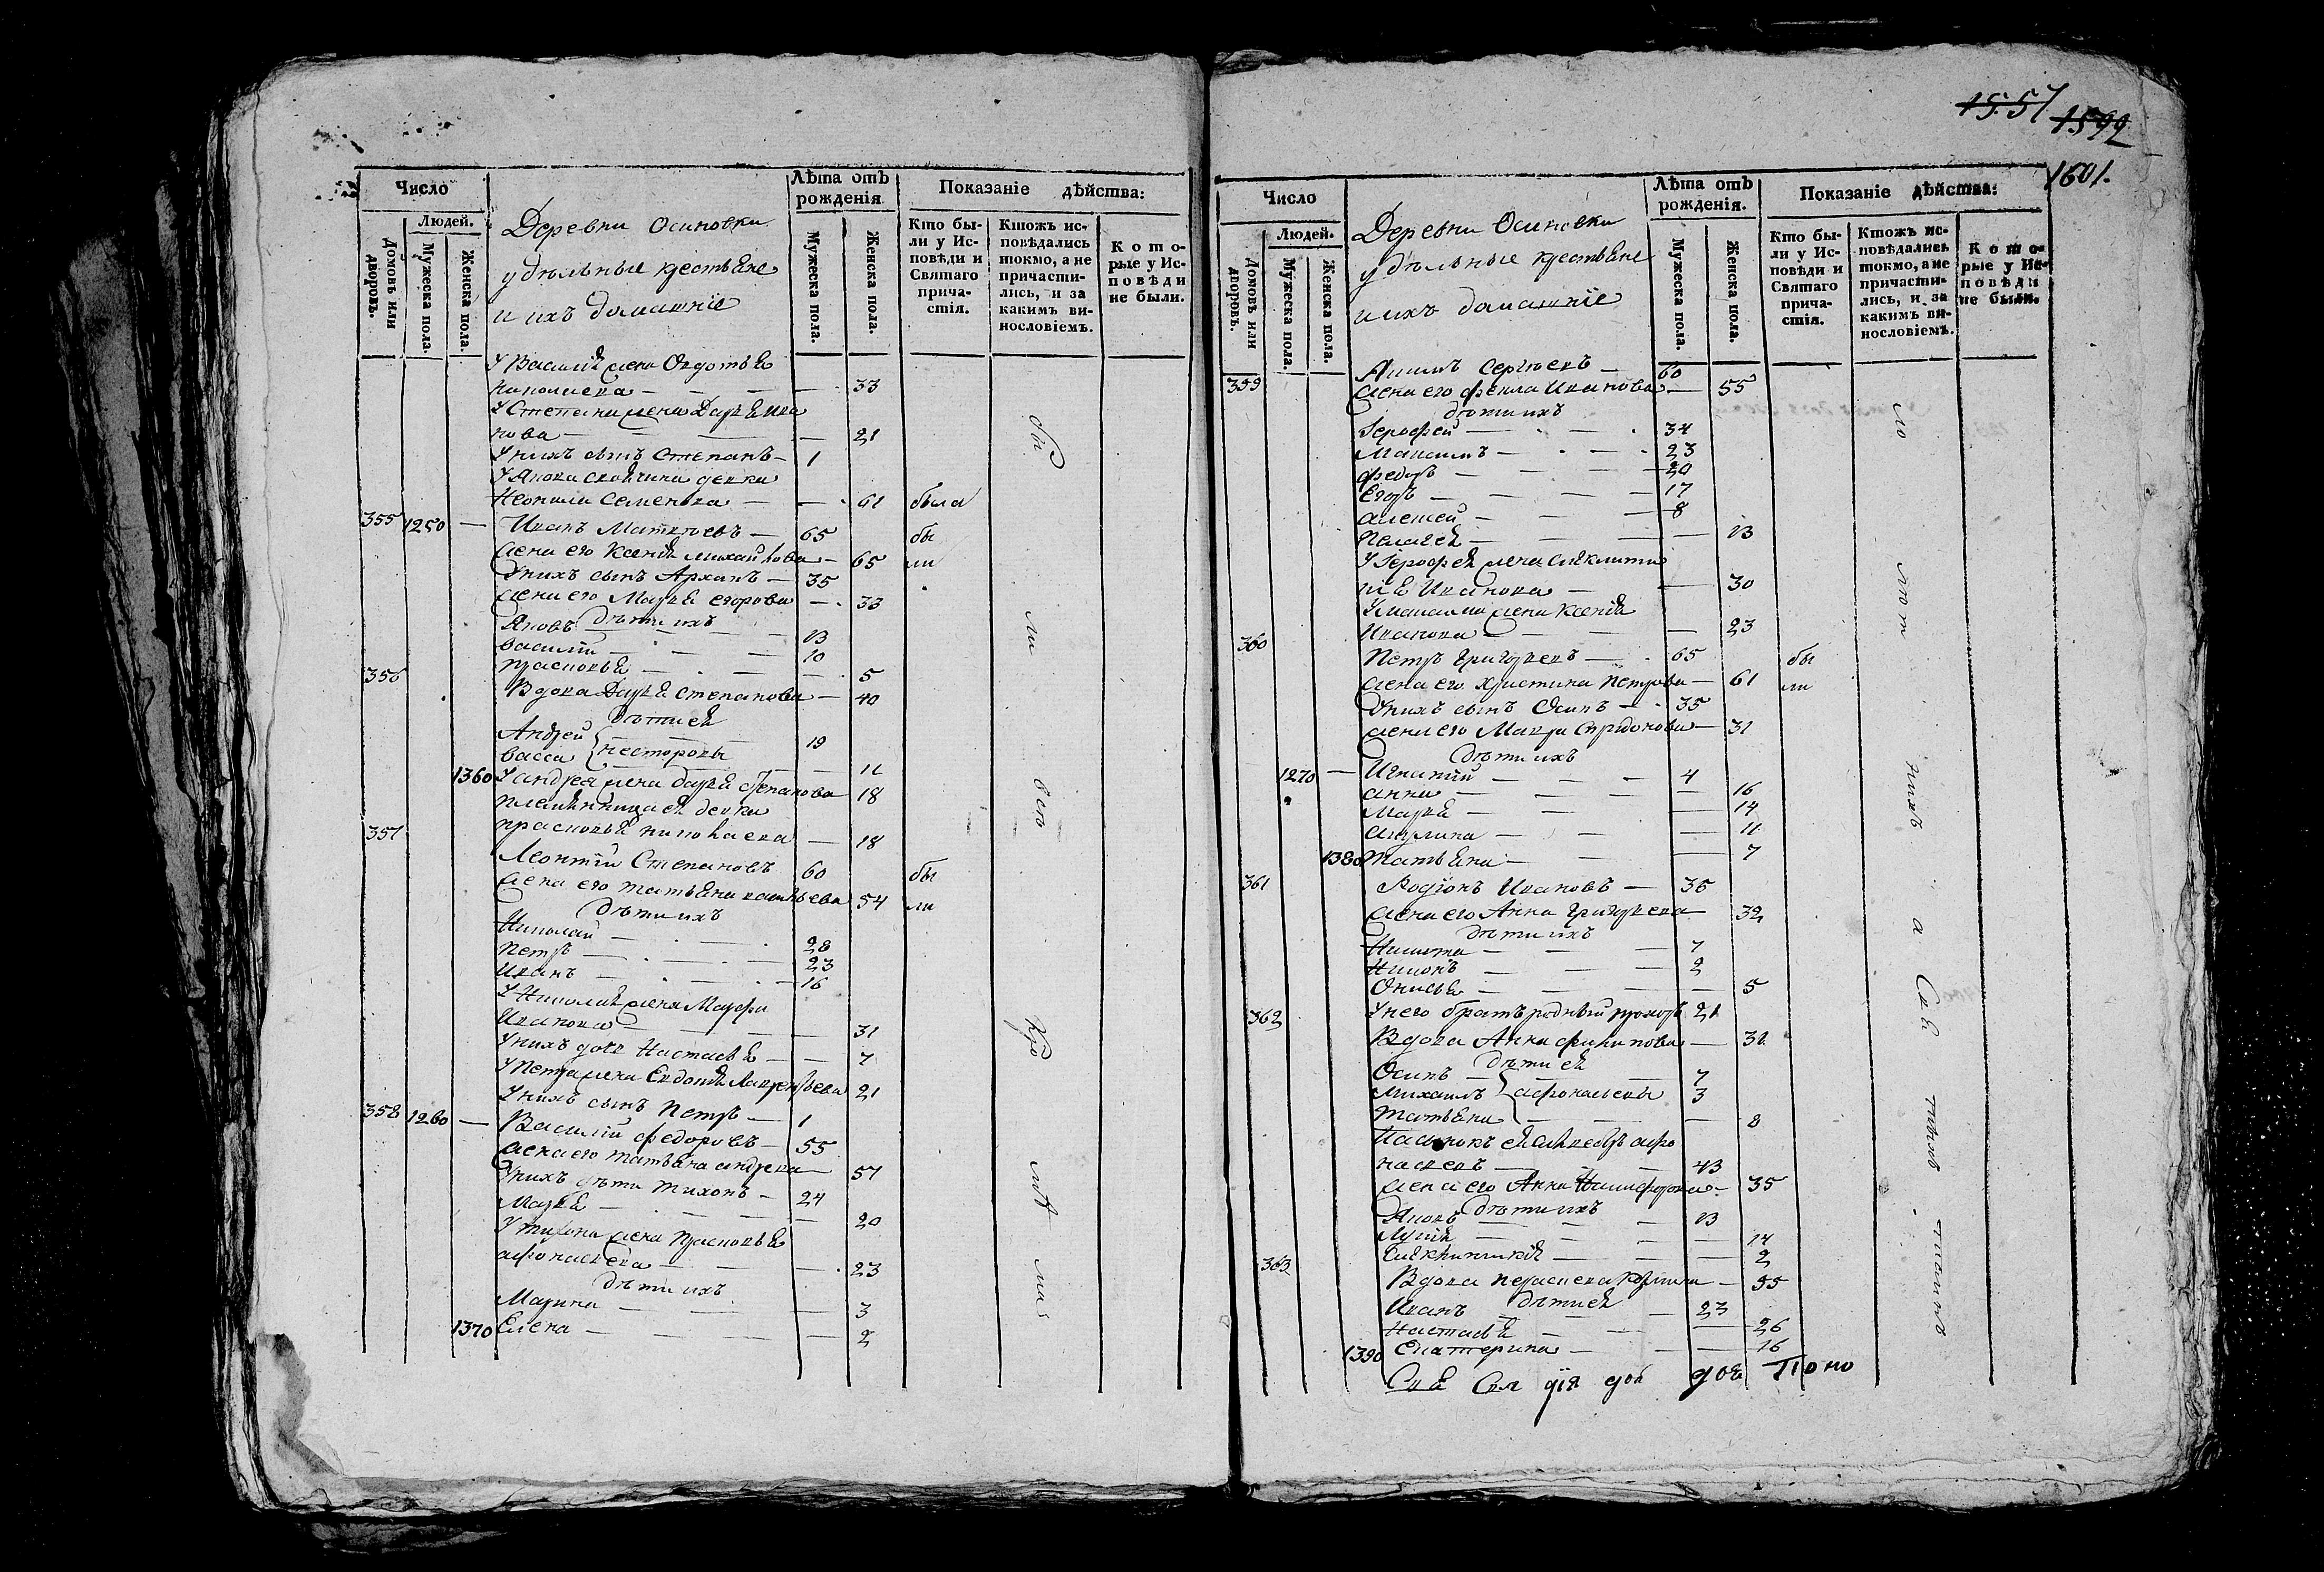 15.57
1592
1601.
Число
Людей.
Домовъ или дворовъ.
Мужеска пола.
Женска пола.
Деревни Осиновки
удѣльные крестьяне
и ихъ домашніе
Лѣта отъ рожденія
Мужеска пола.
Женска пола.
Показаніе дѣйства:
Кто бы-
ли у Ис-
повѣди и
Святаго
прича-
стія.
Ктожъ ис-
повѣдались
токмо, а не
причасти-
лись, и за
какимъ ви-
нословіемъ.
К о т о-
рые у Ис-
п о в ѣ д и
не были.
У Василія жена Овдотья
Николаева — 33
У Степана жена Дарья Ива
нова — 21
У нихъ сынъ Степанъ — 1
девка
Семенова — 61 была
355 1250 — Иванъ Матвѣевъ — 65 бы
жена его Ксенія Михайлова — 65 ли
У нихъ сынъ Архипъ — 35
жена его Марья Егорова — 33
дѣти ихъ
Яковъ — 13
Василій — 10
Прасковья — 5
356 Вдова Дарья Степанова — 40
дѣти ея
Андрей 19
Васса Несторовы — 11
1360 У Андрея жена Дарья Степанова 18
племянница ея девка
Прасковья Николаева — 18
357 Леонтій Степановъ 60 бы
жена его Татьяна Васильева 54 ли
дѣти ихъ
Николай — 28
Петръ — 23
Иванъ — 16
У Николая жена Марфа
Иванова — 31
У нихъ дочь Настасья — 7
У Петра жена Евдокія Лаврентьева 21
У нихъ сынъ Петръ — 1
358 1260 — Василій Федоровъ — 55
жена его Татьяна Андреева — 57
У нихъ дѣти Тихонъ — 24
Марья — 20
У Тихона жена Прасковья
Афонасьева — 23
дѣти ихъ
Марина — 3
1370 Елена — 2
Число
Людей.
Домовъ или дворовъ.
Мужеска пола.
Женска пола.
Деревни Осиновки
удѣльные крестьяне
и ихъ домашніе
Лѣта отъ рожденія.
Мужеска пола.
Женска пола.
Показаніе дѣйства:
Кто бы-
ли у Ис-
повѣди и
Святаго
прича-
стія.
Ктожъ ис-
повѣдались
токмо, а не
причасти-
лись, и за
какимъ ви-
нословіемъ.
К о т о-
рые у Ис-
п о в ѣ д и
не были.
359 Сергѣевъ — 60
жена его Фекла Иванова — 55
дѣти ихъ
Іерофей — 34
Максимъ — 23
Федоръ — 20
Егоръ — 17
Алексей — 8
Пелагея — 13
У Іерофея жена Синклити
кія Иванова — 30
У Максима жена Ксенія
Иванова — 23
360 Петръ Григорьевъ — 65 бы
жена его Христина Петрова — 61 ли
У нихъ сынъ Осипъ — 35
жена его Мавра Спридонова — 31
дѣти ихъ
1270 — Игнатій — 4
Анна — 16
Марья — 14
Акулина — 11
1380 Татьяна — 7
361 Родіонъ Ивановъ — 36
жена его Анна Григорьева 32
дѣти ихъ
Никита — 7
Никонъ — 2
Онисья — 5
У него братъ родный Прохоръ 21
362 Вдова Анна Филипова — 32
дѣти ея
Осипъ — 7
Михаилъ Афонасьевы 3
Татьяна — 8
Пасынокъ ея Афо
насьевъ — 43
жена его Анна Никифорова — 35
дѣти ихъ
Яковъ — 13
Лукія — 14
Синклитикія — 2
363 Вдова — 55
дѣти ея
Иванъ — 23
Настасья — 26
1390 Екатерина — 16